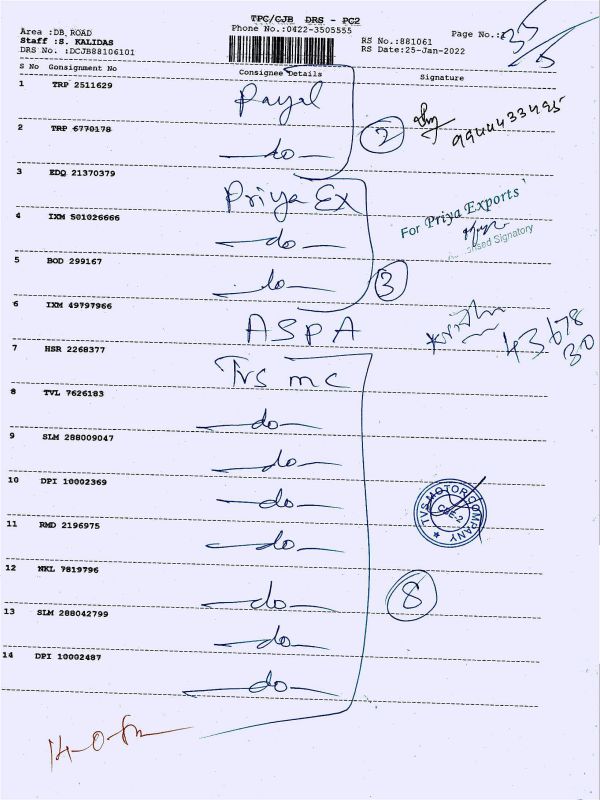 TPC/CJB DRS - PC2
Area :DB.ROAD Phone No.:0422-3505555 Page No.:
Staff :S. KALIDAS RS No.:881061
DRS No. :DCJB88106101 RS Date:25-Jan-2022
35/5
S No Consignment No Consignee Details Signature
1 TRP 2511629 Payal
2 9944433495
2 TRP 6770178 do
3 EDQ 21370379 Priya Ex
For Priya Exports
Signatory
4 IXM 501026666 do
5 BOD 299167 do
3
6 IXM 49797966 ASPA
43678
30
7 HSR 2268377 TVS mc
8 TVL 7626183 do
9 SLM 288009047 do
10 DPI 10002369 do
TVS MOTOR COMPANY
11 RMD 2196975 do
12 NKL 7819796 do
8
13 SLM 288042799 do
14 DPI 10002487 do